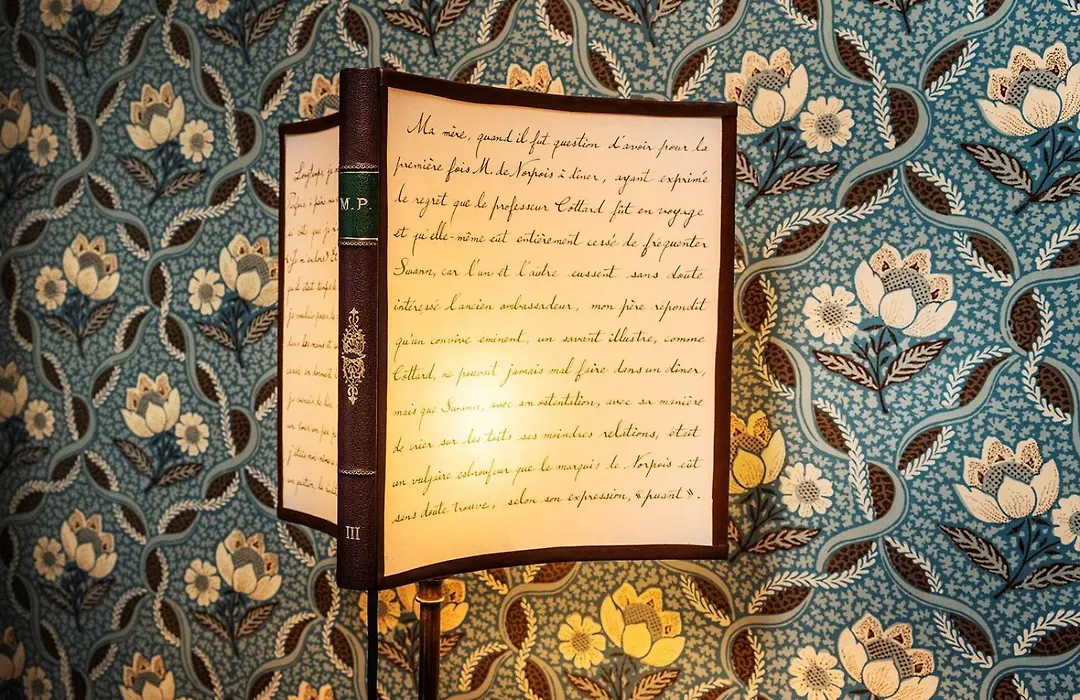 Longtemps je
si vite que je
qu'il était temps
je voulais
M.P.
III
Ma mère, quand il fut question d'avoir pour la
première fois M. de Norpois à dîner, ayant exprimé
le regret que le professeur Cottard fût en voyage
et qu'elle-même eût entièrement cessé de fréquenter
Swann, car l'un et l'autre eussent sans doute
intéressé l'ancien ambassadeur, mon père répondit
qu'un convive éminent, un savant illustre, comme
Cottard, ne pouvait jamais mal faire dans un dîner,
mais que Swann, avec son ostentation, avec sa manière
de crier sur les toits ses moindres relations, était
un vulgaire esbroufeur que le marquis de Norpois eût
sans doute trouvé, selon son expression, « puant ».